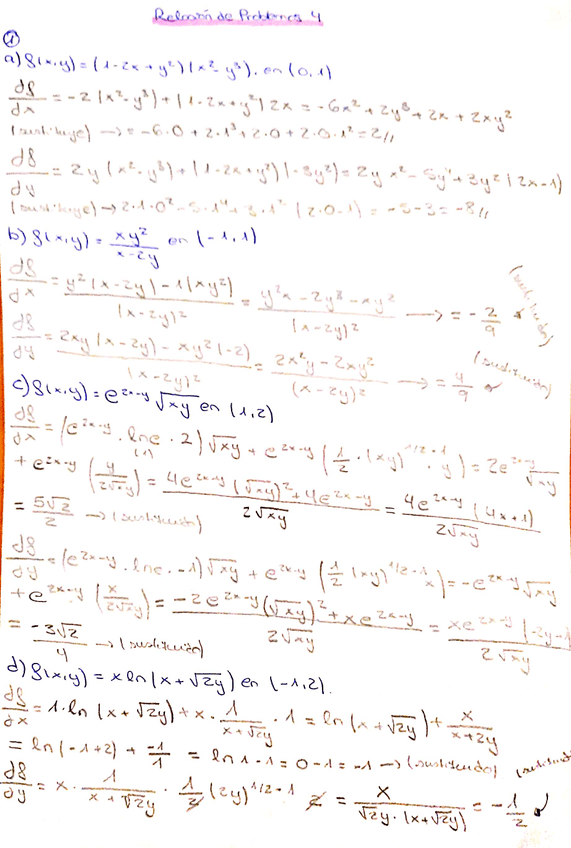 Relación de Problemas 4
①
a) f(x,y) = (1-2x+y²)(x²-y³). en (0,1)
df/dx = -2(x²-y³)+(1-2x+y²)2x = -6x²+2y³+2x+2xy²
(sustituyo) → = -6·0+2·1³+2·0+2·0·1² = 2//
df/dy = 2y(x²-y³)+(1-2x+y²)(-3y²) = 2yx²-5y⁴+3y²(2x-1)
(sustituyo) → 2·1·0²-5·1⁴+3·1²(2·0-1) = -5-3 = -8//
b) f(x,y) = xy²/(x-2y) en (-1,1)
df/dx = (y²(x-2y)-1(xy²))/(x-2y)² = (y²x-2y³-xy²)/(x-2y)² → = -2/9 (sustituyendo)
df/dy = (2xy(x-2y)-xy²(-2))/(x-2y)² = (2x²y-2xy²)/(x-2y)² → = 4/9 (sustituyendo)
c) f(x,y) = e^(2x-y) √xy en (1,2)
df/dx = (e^(2x-y)·lne·2)√xy + e^(2x-y)(1/2·(xy)^(1/2-1)·y) = 2e^(2x-y)√xy
(1)
+ e^(2x-y)(y/(2√xy)) = (4e^(2x-y)(√xy)²+ye^(2x-y))/(2√xy) = (ye^(2x-y)(4x+1))/(2√xy)
= 5√2/2 → (sustituyendo)
df/dy = (e^(2x-y)·lne·-1)√xy + e^(2x-y)(1/2(xy)^(1/2-1)x) = -e^(2x-y)√xy
+ e^(2x-y)(x/(2√xy)) = (-2e^(2x-y)(√xy)²+xe^(2x-y))/(2√xy) = (xe^(2x-y)(-2y+1
= -3√2/4 → (sustituyendo)
d) f(x,y) = x ln(x+√2y) en (-1,2).
df/dx = 1·ln(x+√2y)+x·1/(x+√2y)·1 = ln(x+√2y)+x/(x+2y)
= ln(-1+2)+(-1)/1 = ln1-1 = 0-1 = -1 → (sustituyendo) (sustituyendo
df/dy = x·1/(x+√2y)·1/2(2y)^(1/2-1) 2 = x/(√2y·(x+√2y)) = -1/2